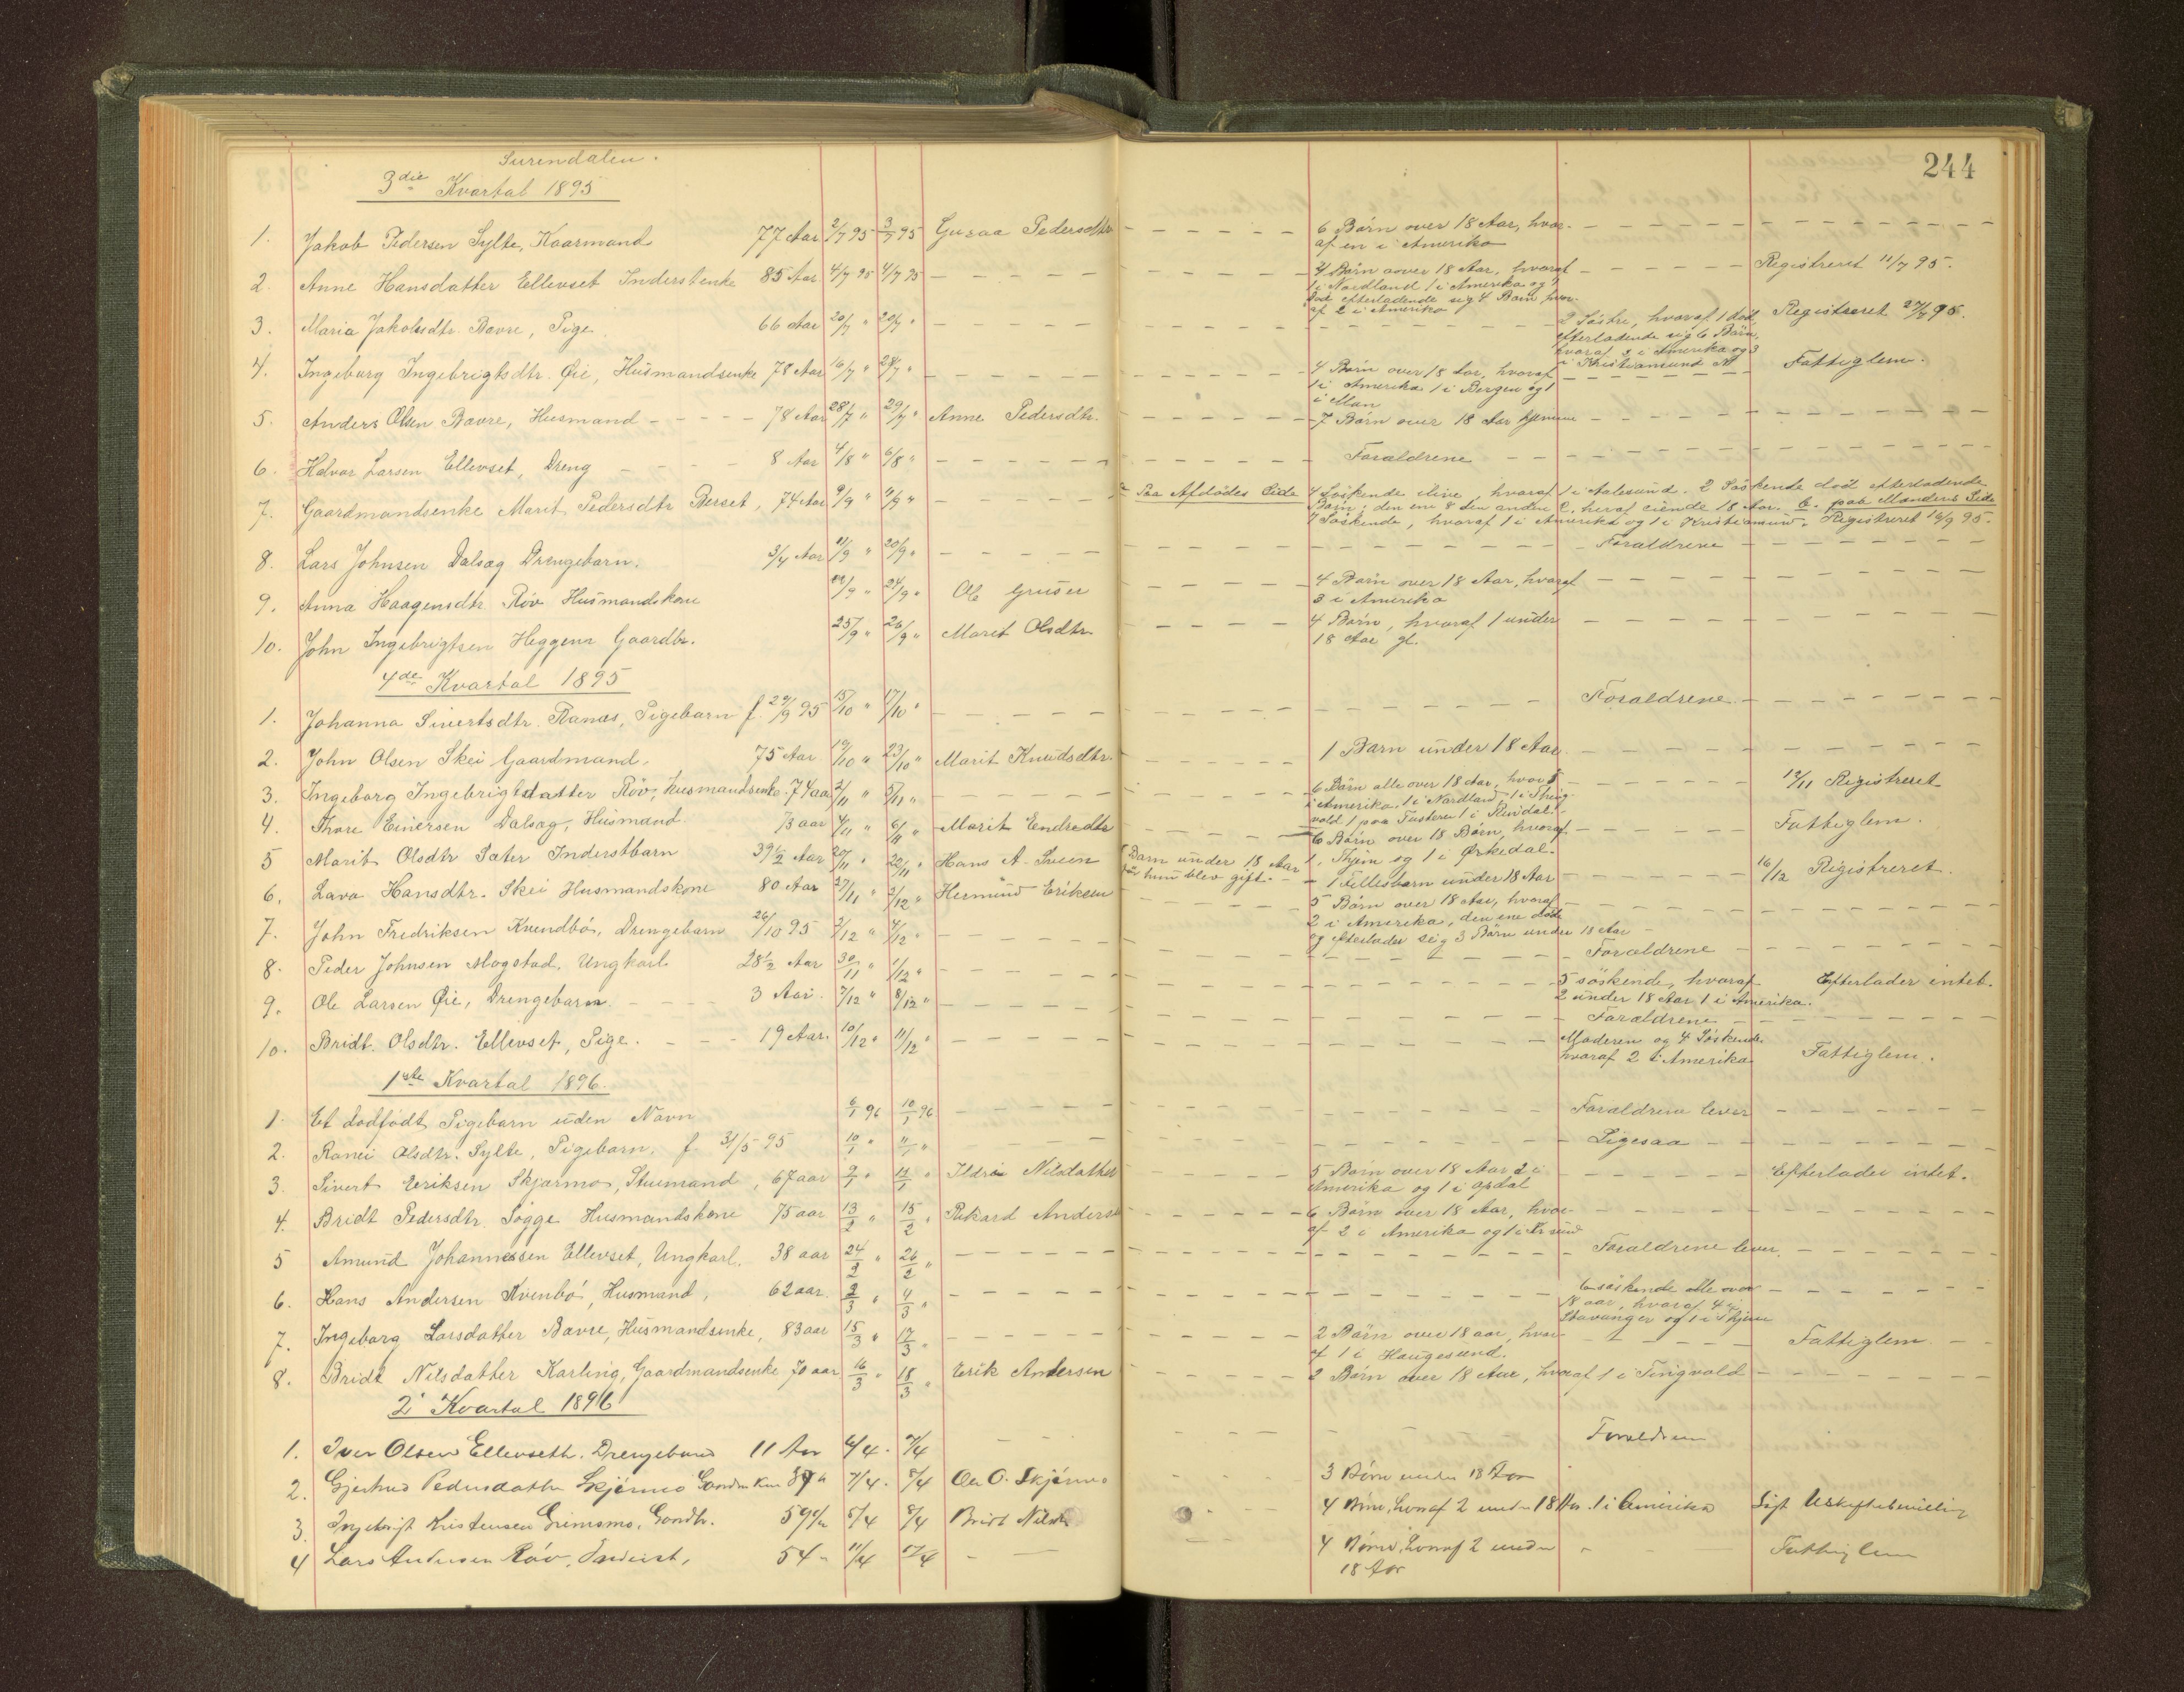 Surendalen.
244
3die Kvartal 1895
1. Jakob Pedersen Sylte, Kaarmand 77 Aar 2/7 95 3/7 95 Guraa Pedersdtr. 6 Börn over 18 Aar, hvor-
af en i Amerika
2. Anne Hansdatter Ellevset Inderstenke 85 Aar 4/7 95 4/7 95 4 Börn over 18 Aar, hvoraf Registreret 11/7 95.
1 i Nordland 1 i Amerika og 1
död efterladende sig 4 Børn hvor-
af 2 i Amerika
3. Maria Jakobsdtr. Bævre, Pige 66 Aar 20/7 " 20/7 " 2 Söstre, hvoraf 1 död, Registreret 95.
efterladende sig 6 Börn,
hvoraf i Amerika og 3
i Kristiansund N
4. Ingeborg Ingebrigtsdtr. Øie, Husmandsenke 78 Aar 16/7 " 24/7 " 4 Börn over 18 Aar, hvoraf Fattiglem.
1 i Amerika 1 i Bergen og 1
i
5. Anders Olsen Bævre, Husmand 78 Aar 28/7 " 29/7 " Anne Pedersdtr. 7 Börn over 18 Aar hjemme
6. Halvor Larsen Ellevset, Dreng 8 Aar 4/8 " 6/8 " Forældrene
7. Gaardmandsenke Marit Pedersdtr Berset, 74 Aar 9/9 " 11/9 " a Paa Afdödes Side 4 Söskende ilive, hvoraf 1 i Aalesund. 2 Söskende död efterladende
Börn; den ene 8 den anden heraf 18 Aar. b. paa Mandens Side
7 Söskende, hvoraf 1 i Amerika og 1 i Kristiansund. Registreret 16/9 95.
8. Lars Johnsen Dalsæg Drengebarn. 3/4 Aar 11/9 " 20/9 " Forældrene
9. Anna Haagensdtr Røv Husmandskone 22/9 " 24/9 " Ole 4 Børn over 18 Aar, hvoraf
3 i Amerika
10. John Ingebrigtsen Heggem Gaardbr. 25/9 " 26/9 " Marit Olsdtr 4 Börn, hvoraf 1 under
18 Aar gl.
4de Kvartal 1895
1. Johanna Sivertsdtr. Ranæs, Pigebarn f. 29/9 95 15/10 " 17/10 " Forældrene
2. John Olsen Skei Gaardmand. 75 Aar 19/10 " 23/10 " Marit Knudsdtr. 1 Barn under 18 Aar
3. Ingeborg Ingebrigtsdatter Röv, Husmandsenke. 74 aar 2/11 " 5/11 " 6 Börn alle over 18 Aar, hvor 12/11 Registreret
i Amerika, 1 i Nordland, 1 i Thing-
vold 1 paa Tustern 1 i Rindal.
4. Thore Einersen Dalsæg, Husmand 73 aar 4/11 " 6/11 " Marit Endredtr 6 Börn over 18 Börn, hvoraf Fattiglem.
1 i Thjem og 1 i Ørkedal.
5 Marit Olsdtr Sæter Inderstbarn 39 1/2 Aar 20/11 " 22/11 " Hans A. Sveen Barn under 18 Aar
før hun blev gift. 1 Fellisbarn under 18 Aar 16/12 Registreret.
6. Lava Hansdtr. Skei Husmandskone 80 Aar 27/11 " 2/12 " Hermund Eriksen 5 Börn over 18 Aar, hvoraf
2 i Amerika, den ene død
og efterlader sig 3 Börn under 18 Aar
7. John Fredriksen Kvendbö, Drengebarn 26/10 95 2/12 " 4/12 " Forældrene
8. Peder Johnsen Mogstad, Ungkarl 28 1/2 Aar 30/11 " 1/12 " 5 söskende, hvoraf Efterlader intet.
2 under 18 Aar 1 i Amerika.
9. Ole Larsen Øie, Drengebarn 3 Aar. 7/12 " 8/12 " Forældrene
10. Bridt Olsdtr. Ellevset, Pige. 19 Aar. 10/12 " 11/12 " Moderen og 4 Söskende Fattiglem.
hvoraf 2 i Amerika
1ste Kvartal 1896.
1. Et dødfødt Pigebarn uden Navn 6/1 96 10/1 96 Forældrene lever
2. Ranei Olsdtr. Sylte, Pigebarn. f. 31/5 95 10/1 " 11/1 " Ligesaa
3. Sivert Eriksen Skjærmo, Stuemand, 67 aar 9/1 " 11/1 " Ildri Nilsdatter 5 Börn over 18 Aar 2 i Efterlader intet.
Amerika og 1 i Opdal
4. Bridt Pedersdtr. Sogge Husmandskone 75 aar 13/2 " 15/2 " Rikard Anders 6 Börn over 18 Aar, hvor-
af 2 i Amerika og 1 i Kr sund
5 Amund Johannessen Ellevset, Ungkarl. 38 aar 24/2 26/2 " Forældrene lever.
6. Hans Andersen Kvenbö, Husmand, 62 aar. 2/3 " 4/3 " 6 söskende alle over
18 aar, hvoraf 4 i
Stavanger og 1 i Thjem
7. Ingeborg Larsdatter Bævre, Husmandsenke, 83 aar 15/3 " 17/3 " 2 Börn over 18 aar, hvor- Fattiglem
af 1 i Haugesund.
8. Bridt Nilsdatter Karling, Gaardmandsenke 70 aar 16/3 " 18/3 " Erik Andersen 2 Börn over 18 Aar, hvoraf 1 i Tingvold
2 Kvartal 1896
1. Iver Olsen Ellevseth. Drengebarn 11 Aar 6/4. 7/4 Forældrene
2. Gjertrud Pedersdatter Skjérmo 7/4. 8/4 Ole O. Skjérmo 3 Börn under 18 Aar
3. Ingebrigt Kristensen Grimsmo, Gaardbr. 59 5/4 8/4 Bridt Nilsdtr 4 Börn, hvoraf 2 under 18 Aar. 1 i Amerika Søgt Uskiftebevilling
4 Lars Andersen Röv, Inderst, 54 " 11/4 4 Börn, hvoraf 2 under Fattiglem
18 Aar